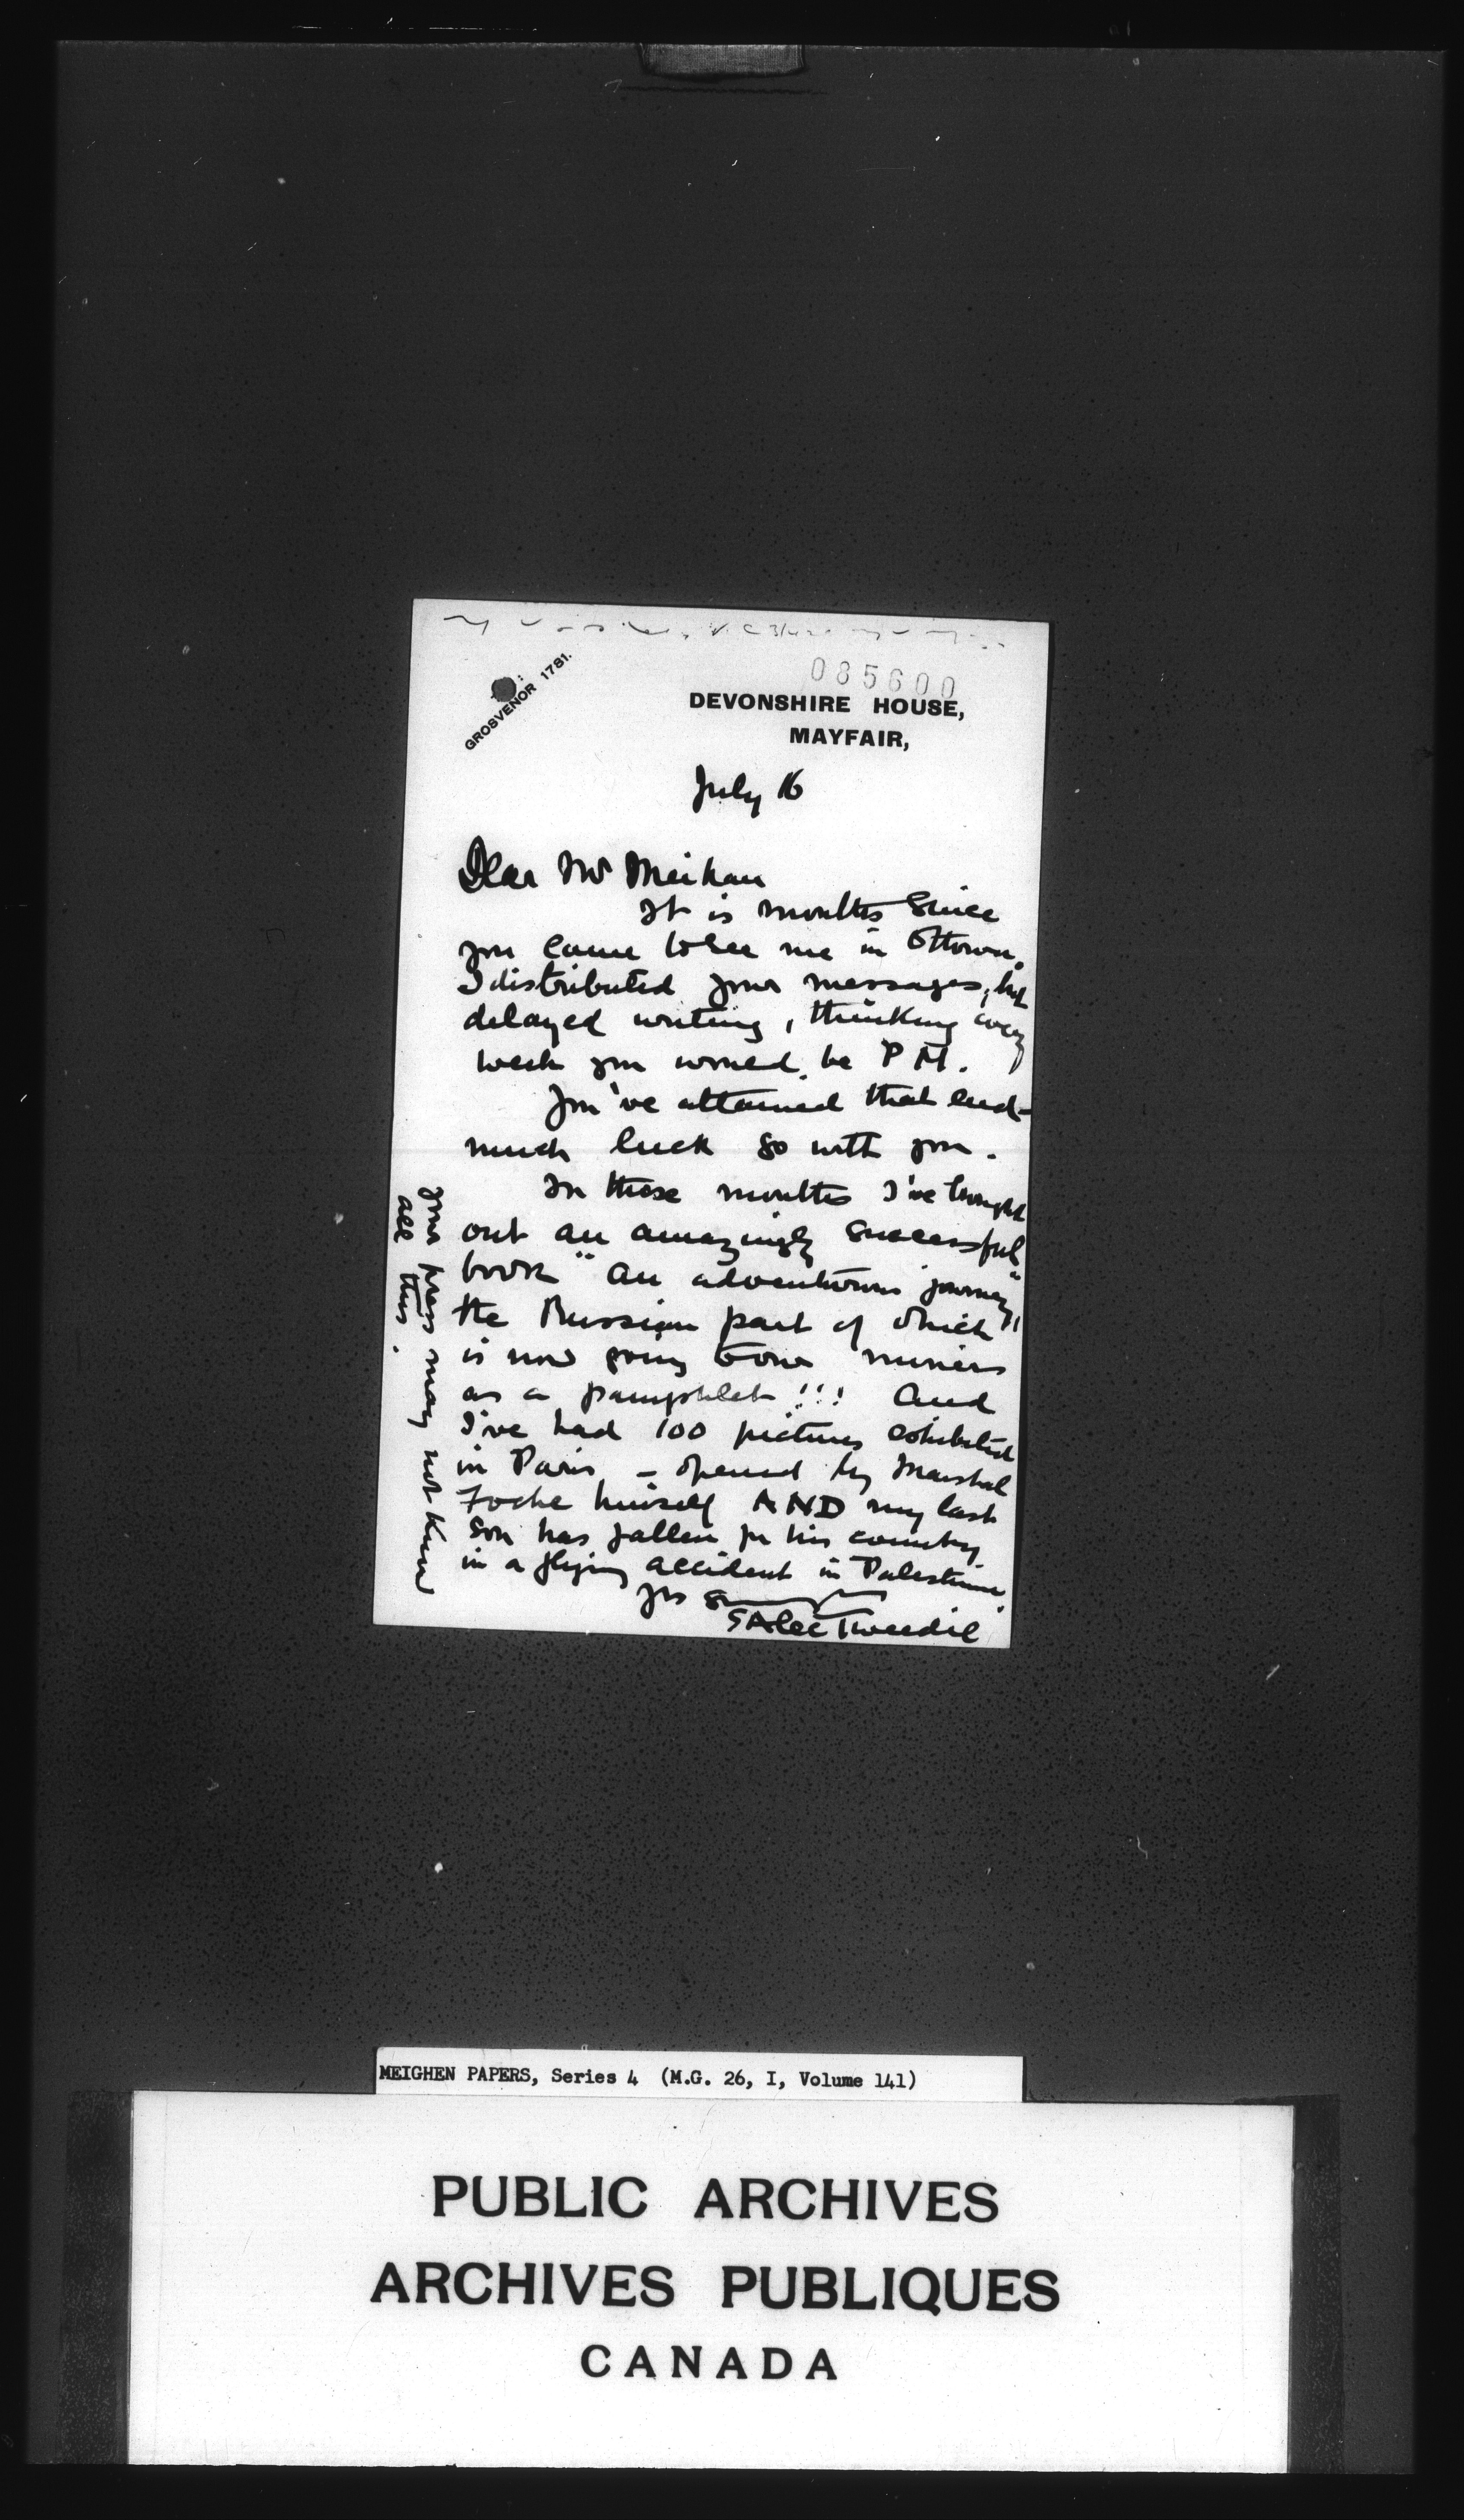 085600
GROSVENOR 1781.
DEVONSHIRE HOUSE,
MAYFAIR,
July 16
Dear Mr Meihan
It is months since
you came to see me in Ottowa.
I distributed your messages, but
delayed writing, thinking every
week you would be PM.
You've attained that end-
much luck go with you.
In these months I've brought
out an amazingly successful
book "An adventurous journey"
the Russian part of which
is now going to our miners
as a pamphlet!!! And
I've had 100 pictures exhibited
in Paris - opened by Marshal
Foche himself AND my last
son has fallen for his country
in a flying accident in Palestine.
Yrs
E Alec Tweedie
your press may not know
all this.
MEIGHEN PAPERS, Series 4 (M.G. 26, I, Volume 141)
PUBLIC ARCHIVES
ARCHIVES PUBLIQUES
CANADA